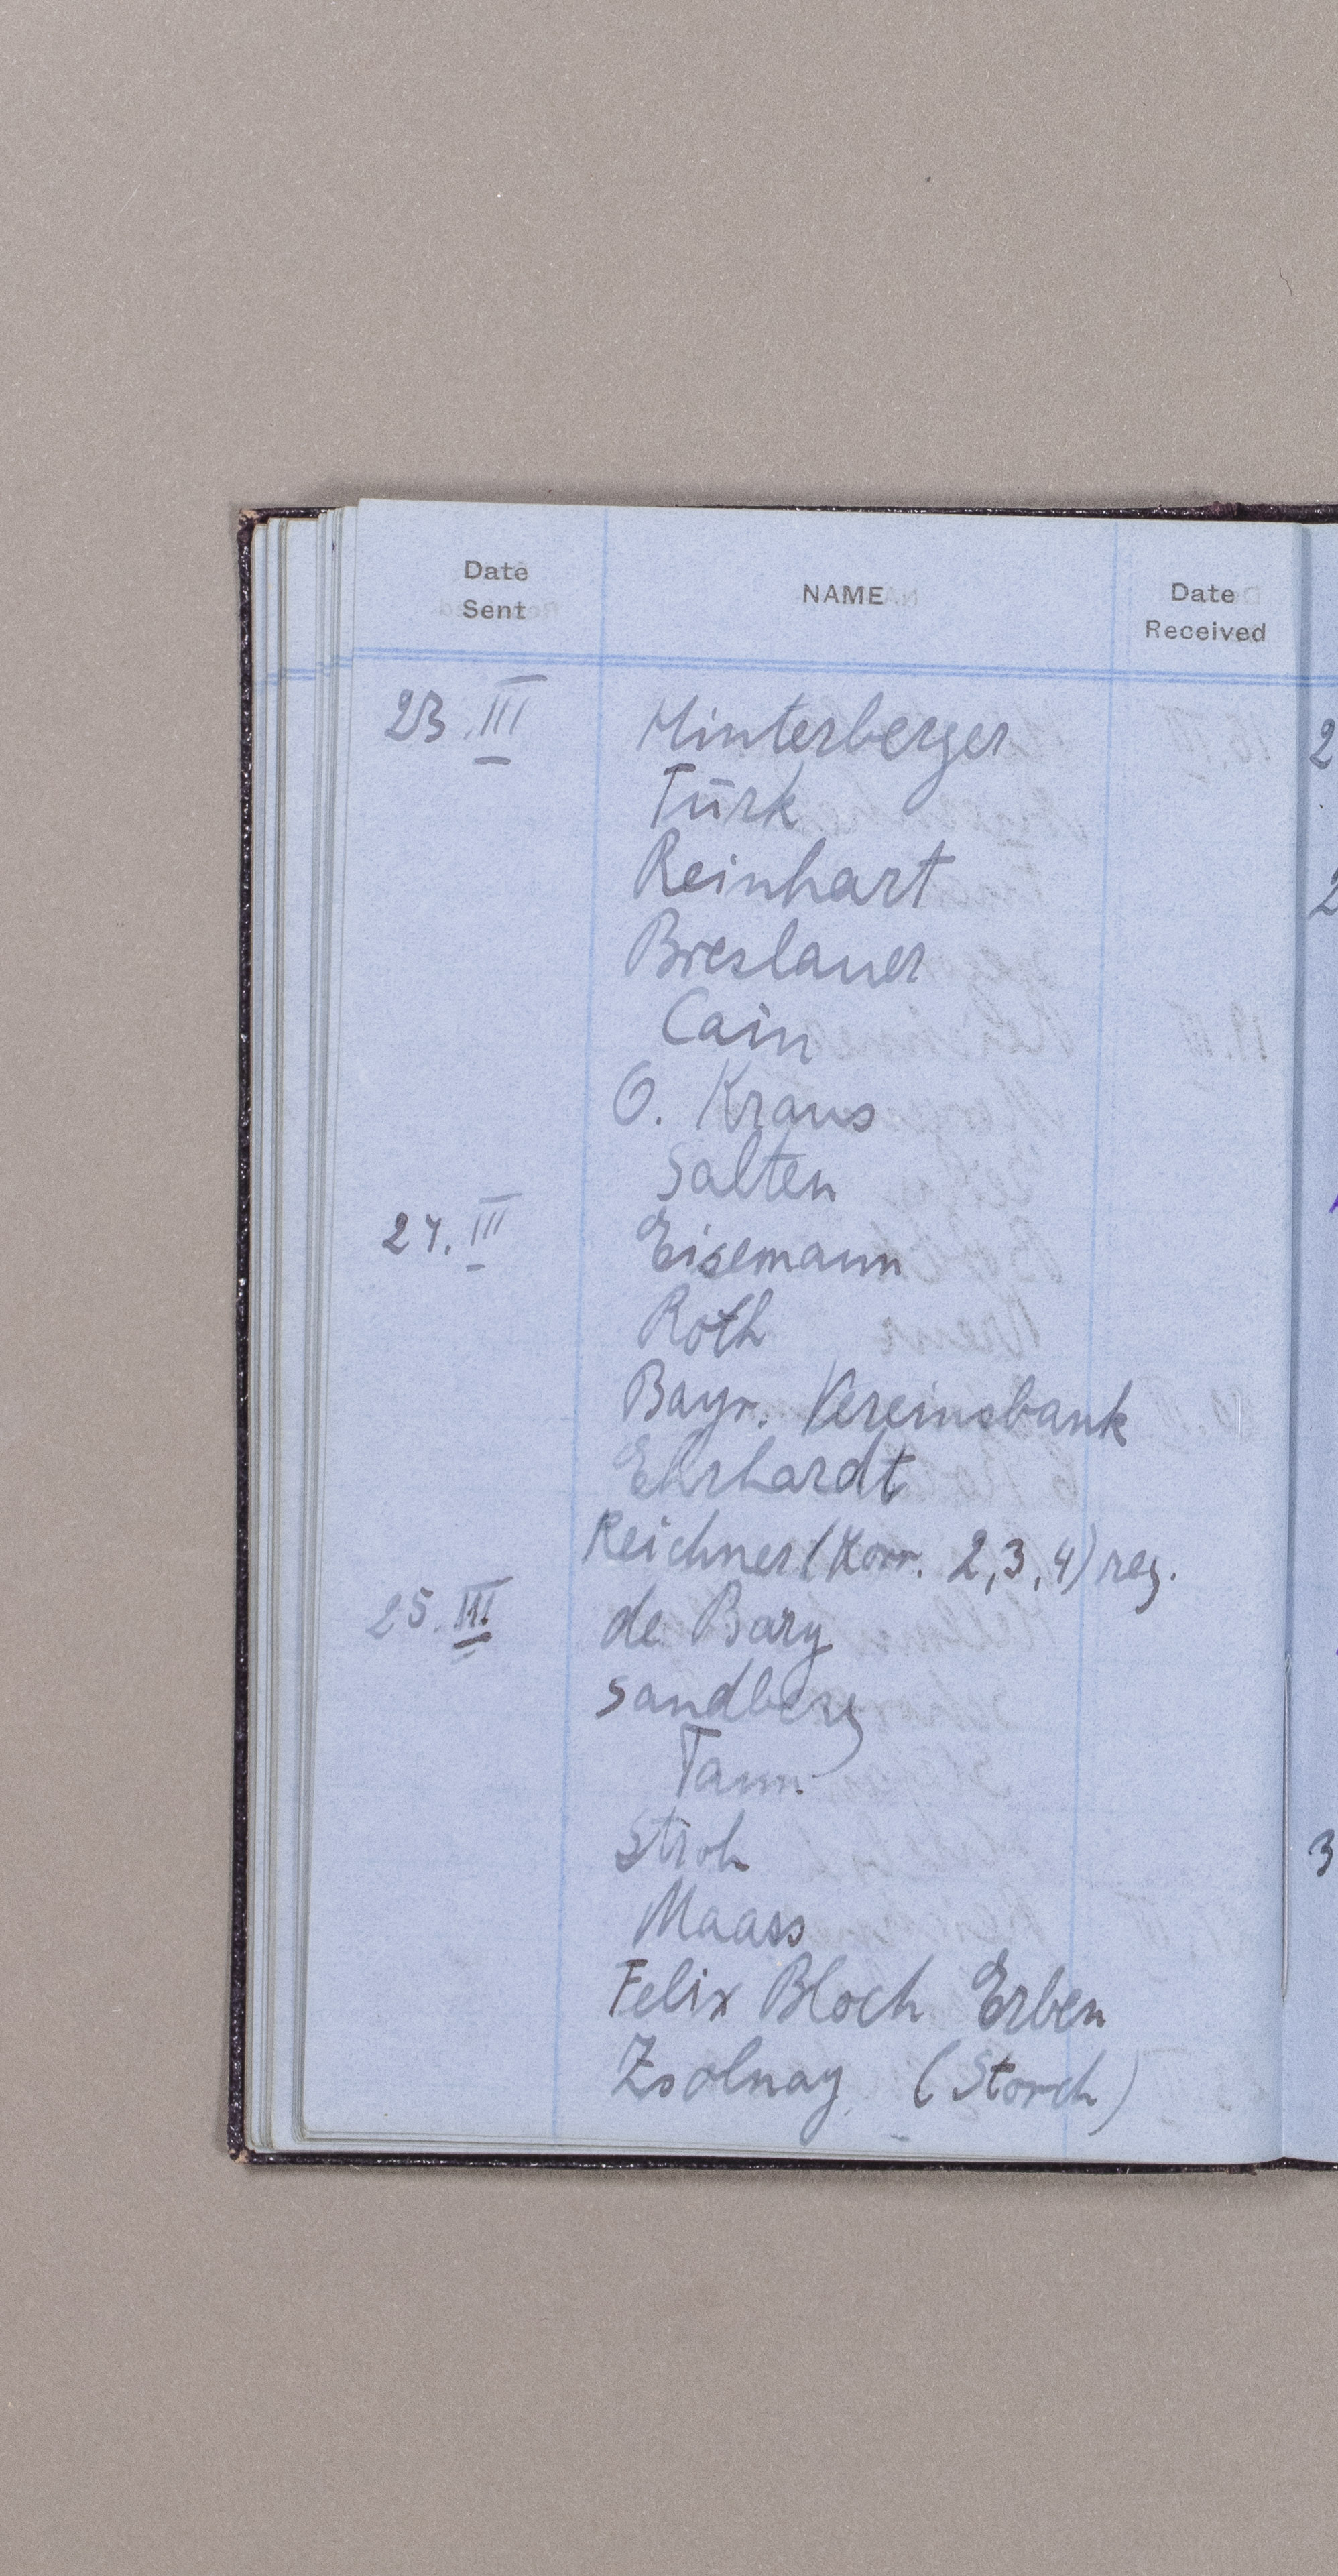 Date Sent NAME Date Received
23.III Hinterberger
Türk
Reinhart
Breslauer
Cain
O. Kraus
Salten
24.III Eisemann
Roth
Bayr. Vereinsbank
Ehrhardt
Reichner (Korr. 2,3,4) reg.
25.III. de Bary
Sandberg
Tann.
Stroh
Maass
Felix Bloch Erben
Zsolnay (Storch)